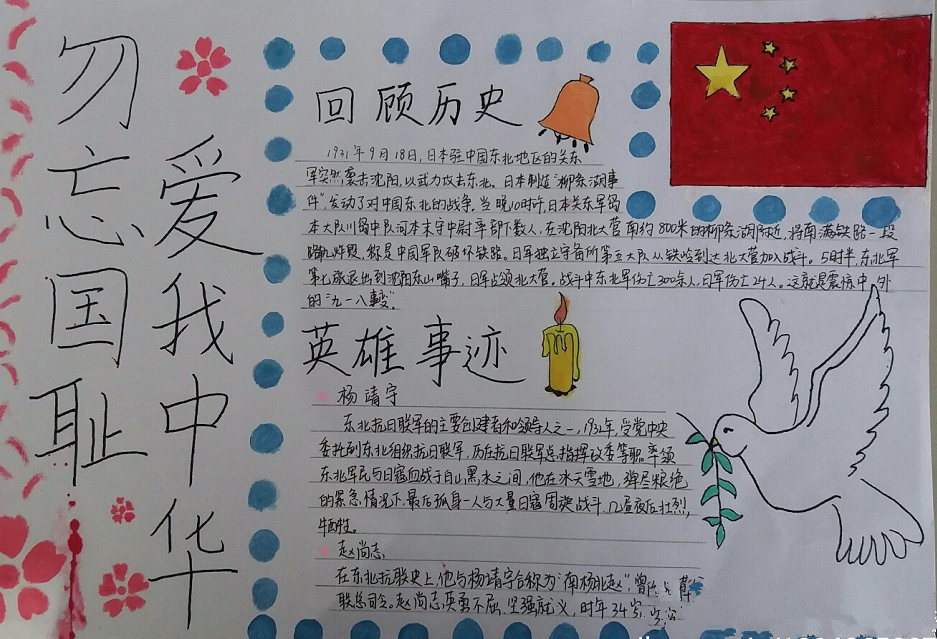 勿忘国耻
爱我中华
回顾历史
1931年9月18日,日本驻中国东北地区的关东
军突然袭击沈阳,以武力攻击东北。日本制造"柳条湖事
件",发动了对中国东北的战争。当晚10时许,日本关东军岛
本大队川岛中队河本末守中尉率部下数人,在沈阳北大营南约800米的柳条湖附近,将南满铁路一段
路轨炸毁,称是中国军队破坏铁路。日军独立守备所第五大队从铁岭到达北大营加入战斗。5时半,东北军
第七旅退出到沈阳东山嘴子,日军占领北大营。战斗中东北军伤亡300余人,日军伤亡24人。这就是震惊中外
的"九一八事变"。
英雄事迹
杨靖宇
东北抗日联军的主要创建者和领导人之一,1932年,受党中央
委托到东北组织抗日联军,历任联军总指挥政委等职率领
东北军民与日寇血战于白山黑水之间,他在冰天雪地,弹尽粮绝
的紧急情况下,最后孤身一人与大量日寇周旋战斗几昼夜后壮烈
牺牲。
赵尚志
在东北抗联史上,他与杨靖宇合称为"南杨北赵",曾任
联总司令。赵尚志英勇不屈,坚强就义,时年34岁